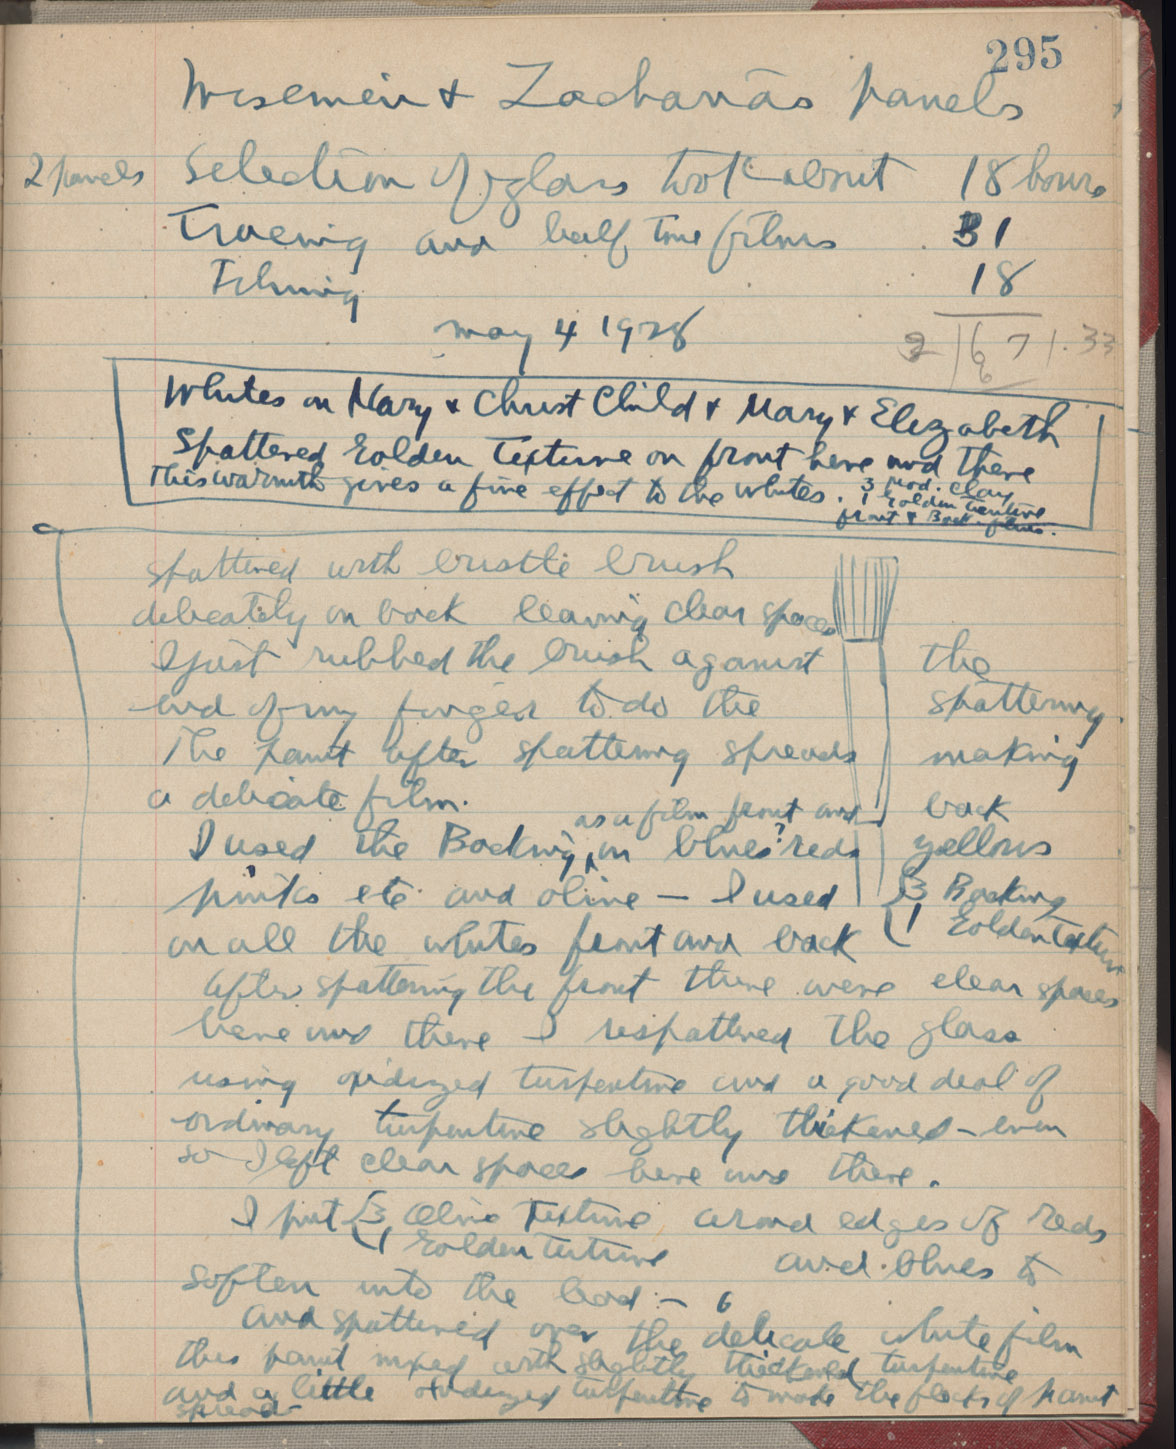 295
Wisemen & Zacharias panels
2 panels Selection of glass took about 18 hours
Tracing and half tone films 31
Filming 18
May 4 1928
2 67 .33
6
Whites on Mary & Christ Child & Mary & Elizabeth
Spattered Golden Texture on front here and there
This warmth gives a fine effect to the whites.
3 Mod. Clay
1 Golden texture
front & Back films.
spattered with bristle brush
delicately on back leaving clear spaces
I just rubbed the brush against the
end of my finger to do the spattering.
The paint after spattering spreads making
a delicate film.
as a film front and back
I used the Backing on blues? reds yellows
pinks etc and olive — I used 3 Backing
1 Golden Texture
on all the whites front and back
After spattering the front there were clear spaces
here and there I respattered the glass
using oxidized turpentine and a good deal of
ordinary turpentine slightly thickened – even
so I left clear spaces here and there.
I put 3 Olive Texture around edges of reds
1 Golden texture and blues to
soften into the lead –
and spattered over the delicate white film
this paint mixed with slightly thickened turpentine
and a little oxidized turpentine to made the flecks of paint
spread